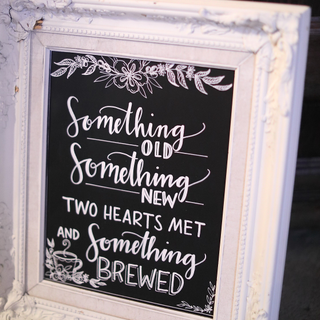 Something
OLD
Something
NEW
TWO HEARTS MET
AND Something
BREWED